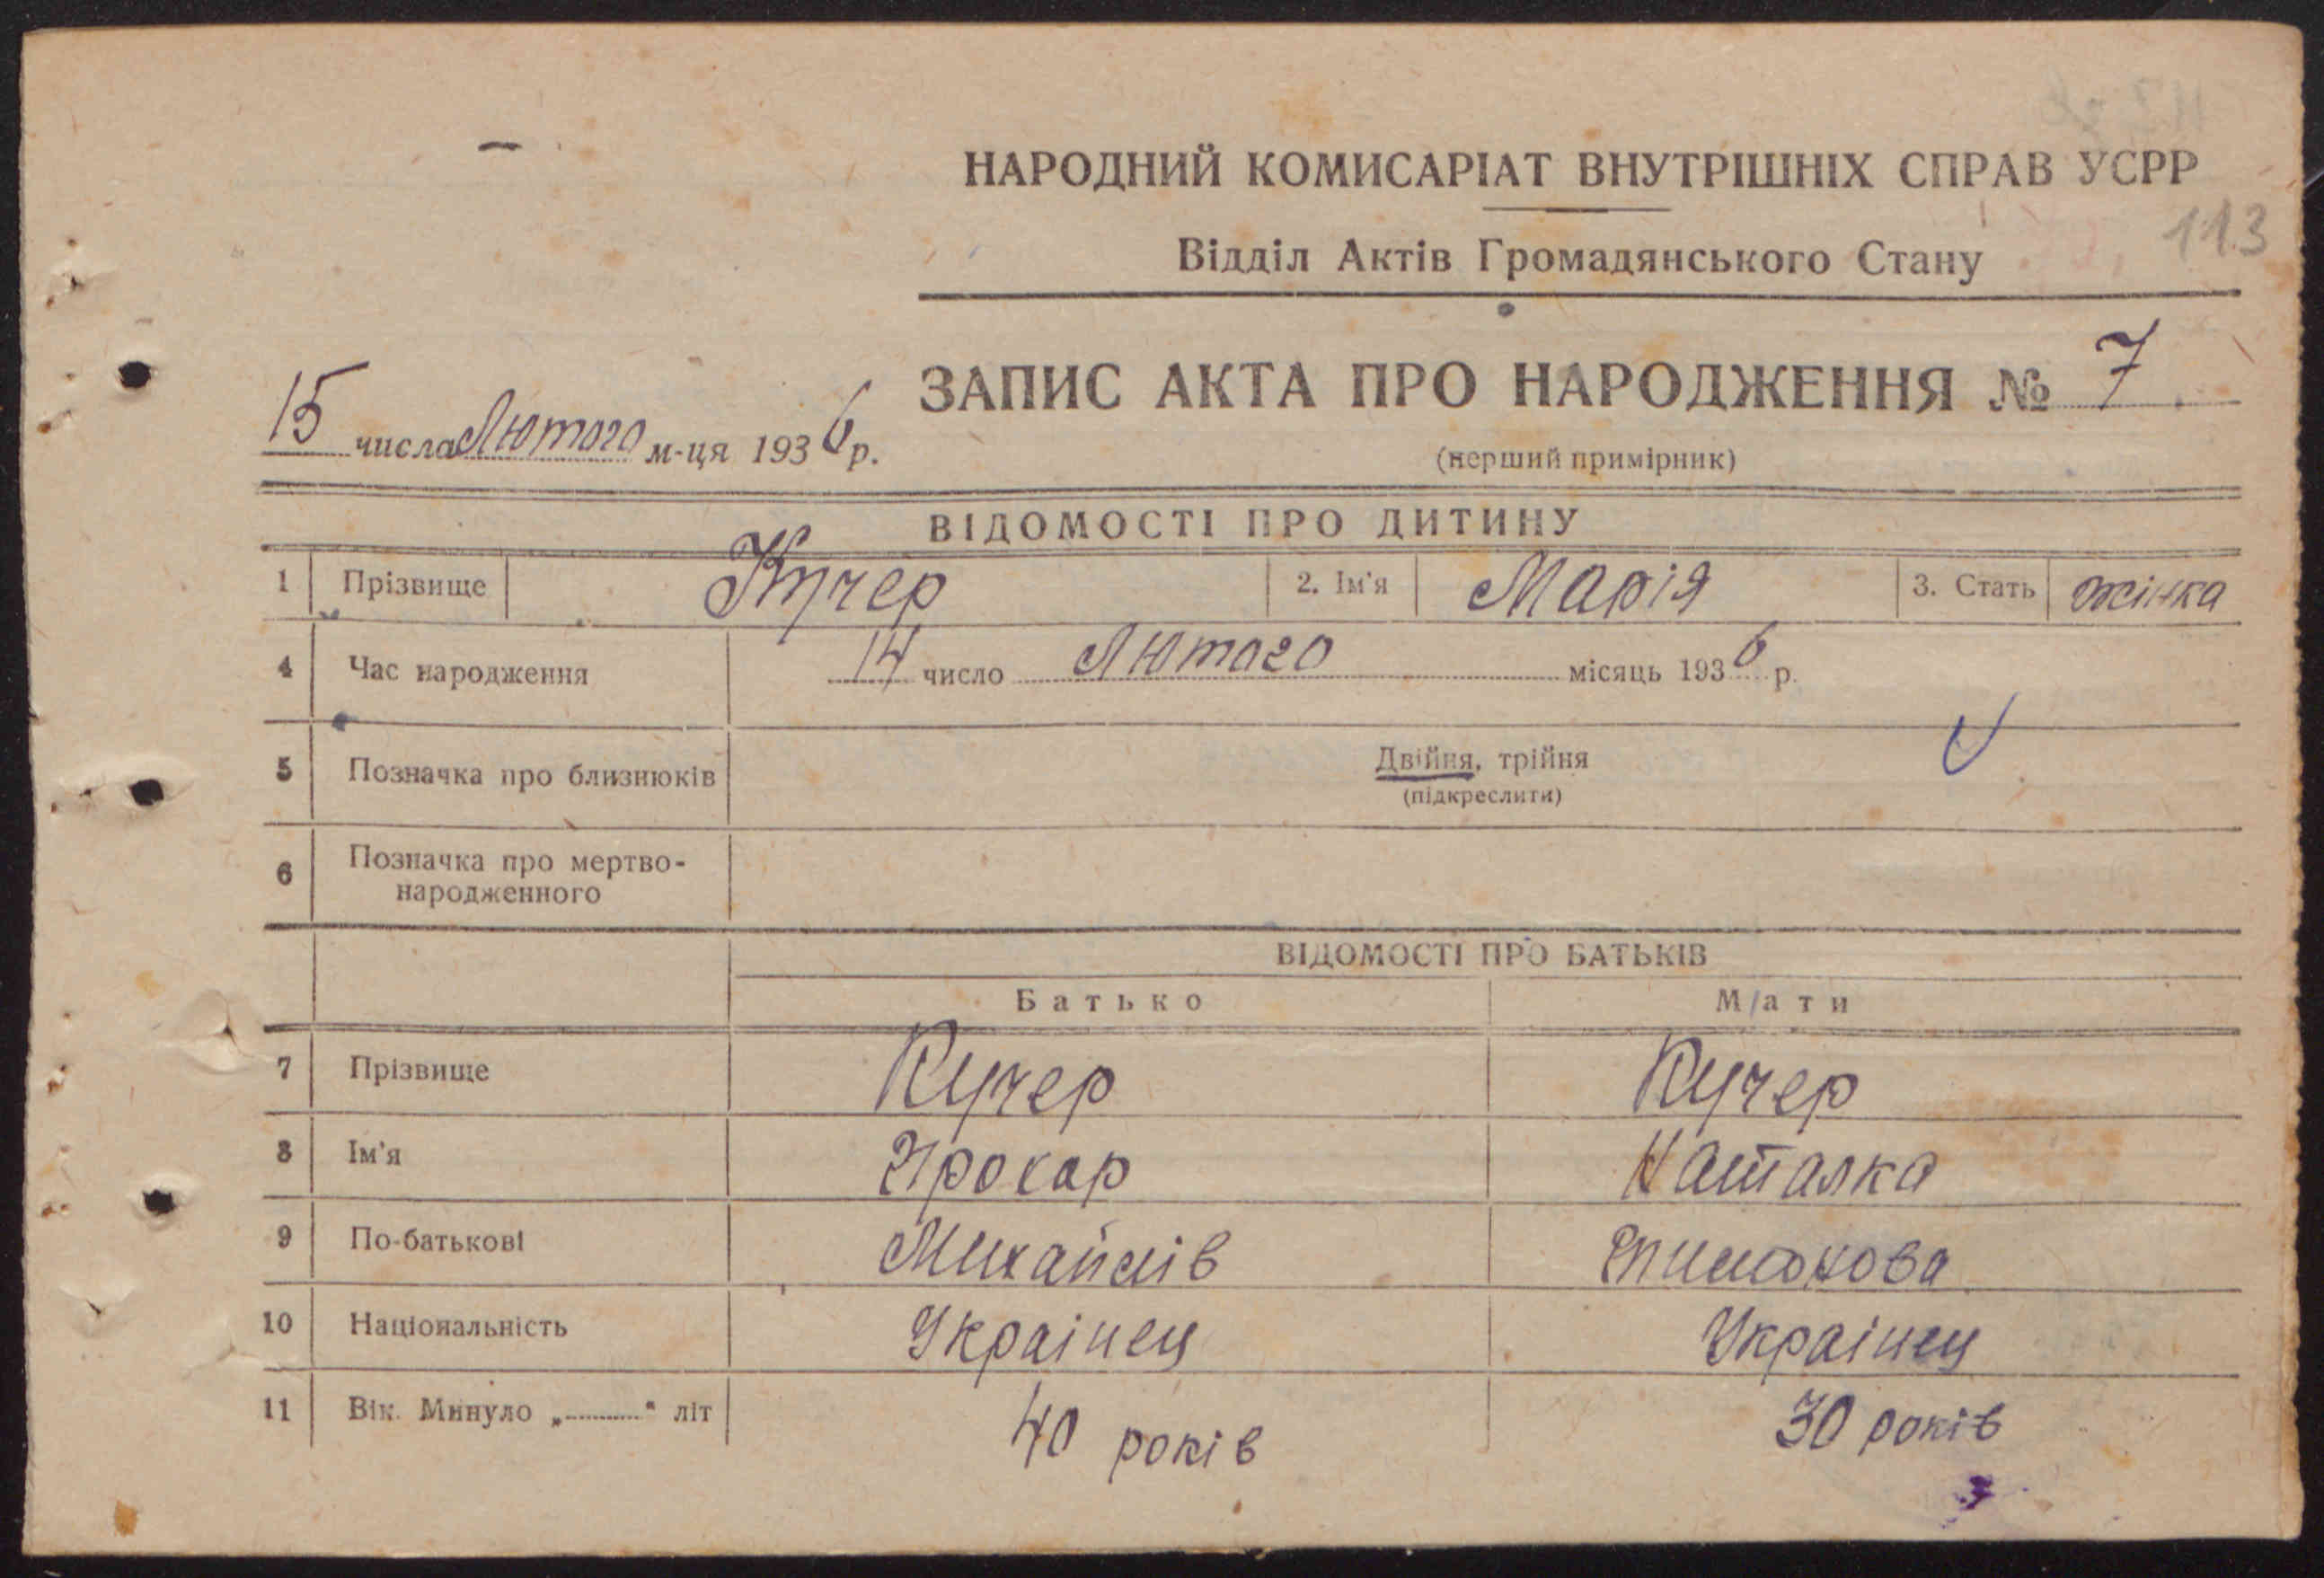 НАРОДНИЙ КОМИСАРІАТ ВНУТРІШНІХ СПРАВ УСРР
113
Відділ Актів Громадянського Стану
ЗАПИС АКТА ПРО НАРОДЖЕННЯ № 7
15 числа Лютого м-ця 1936 р.
(перший примірник)
ВІДОМОСТІ ПРО ДИТИНУ
1 Прізвище Кучер 2. Ім'я Марія 3. Стать жінка
4 Час народження 14 число Лютого місяць 1936 р.
5 Позначка про близнюків Двійня, трійня
(підкреслити)
6 Позначка про мертво-
народженного
ВІДОМОСТІ ПРО БАТЬКІВ
Батько Мати
7 Прізвище Кучер Кучер
8 Ім'я Прокар Наталка
9 По-батькові Михайлів
10 Національність Украінец Украінец
11 Вік. Минуло „ “ літ 40 років 30 років